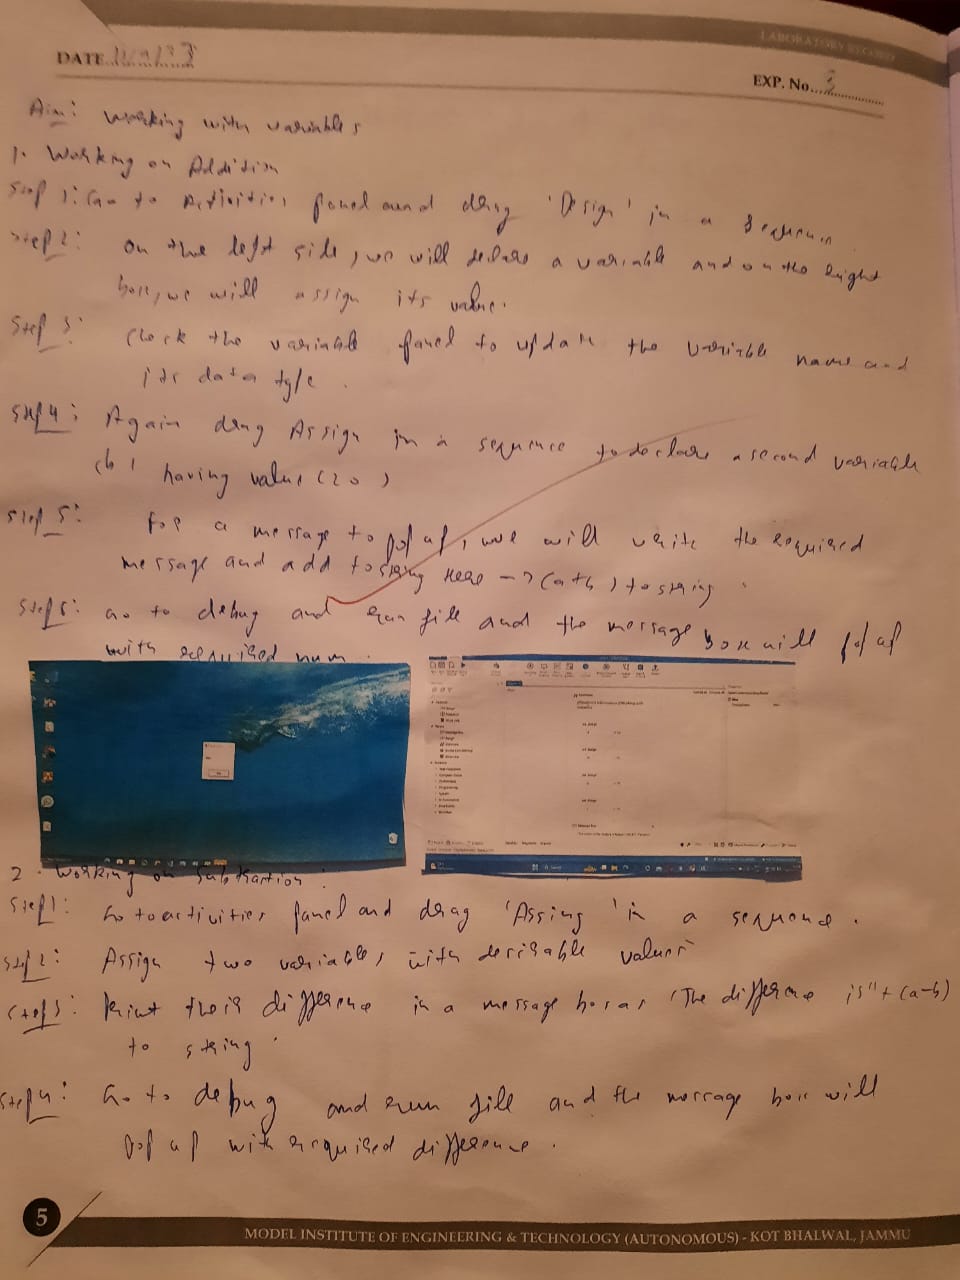 LABORATORY RECORD
DATE
EXP. No. 3
Aim: Working with variables
1. Working on Addition
Step 1: Go to Activities panel and drag 'Design' in a sequence
Step 2: on the left side, we will declare a variable and on the right
box, we will assign its value.
Step 3: Check the variable panel to update the variable name and
its data type.
Step 4: Again drag Assign in a sequence to declare a second variable
(b) having value (20)
Step 5: For a message to pop up, we will write the required
message and add tostring Here → (a+b) to string.
Step 6: Go to debug and run file and the message box will pop up
with required num.
2. Working on Subtraction:
Step 1: Go to activities panel and drag 'Assing' in a sequence.
Step 2: Assign two variables with desirable values
Step 3: Print their difference in a message box as "The difference is" + (a-b)
to string.
Step 4: Go to debug and run file and the message box will
pop up with required difference.
5
MODEL INSTITUTE OF ENGINEERING & TECHNOLOGY (AUTONOMOUS) - KOT BHALWAL, JAMMU